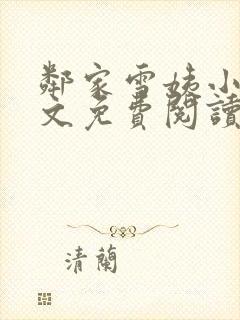 鄰家雪姨小
文免費閱讀
清蘭